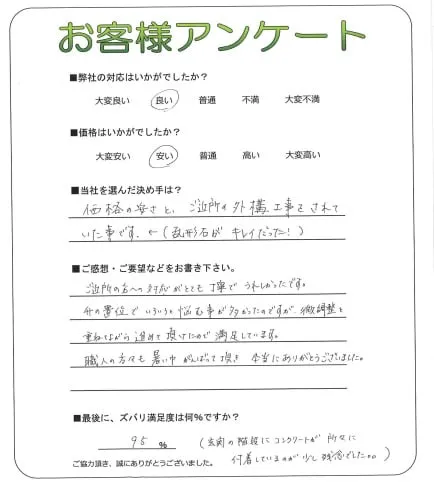 お客様アンケート
■弊社の対応はいかがでしたか？
大変良い 良い 普通 不満 大変不満
■価格はいかがでしたか？
大変安い 安い 普通 高い 大変高い
■当社を選んだ決め手は？
価格の安さと、ご近所の外構工事をされて
いた事です。←(乱形石がキレイだった！)
■ご感想・ご要望などをお書き下さい。
ご近所の方への対応がとても丁寧でうれしかったです。
の置位でいろいろと悩む事が多かったのですが、微調整を
重ねながら進めて頂けたので満足しています。
職人の方々も暑い中がんばって頂き本当にありがとうございました。
■最後に、ズバリ満足度は何％ですか？
95 ％ (玄関の階段にコンクリートが所々に
付着しているのが少し残念でした。。)
ご協力頂き、誠にありがとうございました。